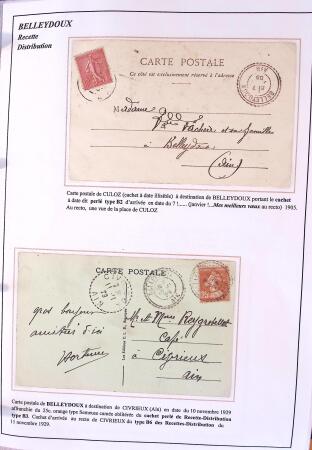 BELLEYDOUX
Recette
Distribution
CARTE POSTALE
Ce côté est exclusivement réservé à l'adresse
BELLEYDOUX
AIN
Madame
Vve Vächer et sa famille
à Belleydoux
(Ain)
Carte postale de CULOZ (cachet à date illisible) à destination de BELLEYDOUX portant le cachet
à date dit perlé type B2 d'arrivée en date du 7 !...... (janvier !...Mes meilleurs vœux au recto) 1905.
Au recto, une vue de la place de CULOZ
CARTE POSTALE
gros bonjour
amitiés d'ici
Mr et Mme
Café
à Civrieux
Ain
Carte postale de BELLEYDOUX à destination de CIVRIEUX (AIn) en date du 10 novembre 1929
affranchie du 25c. orange type Semeuse camée oblitérée du cachet perlé de Recette-Distribution
type B3. Cachet d'arrivée au recto de CIVRIEUX du type B6 des Recettes-Distribution du
11 novembre 1929.